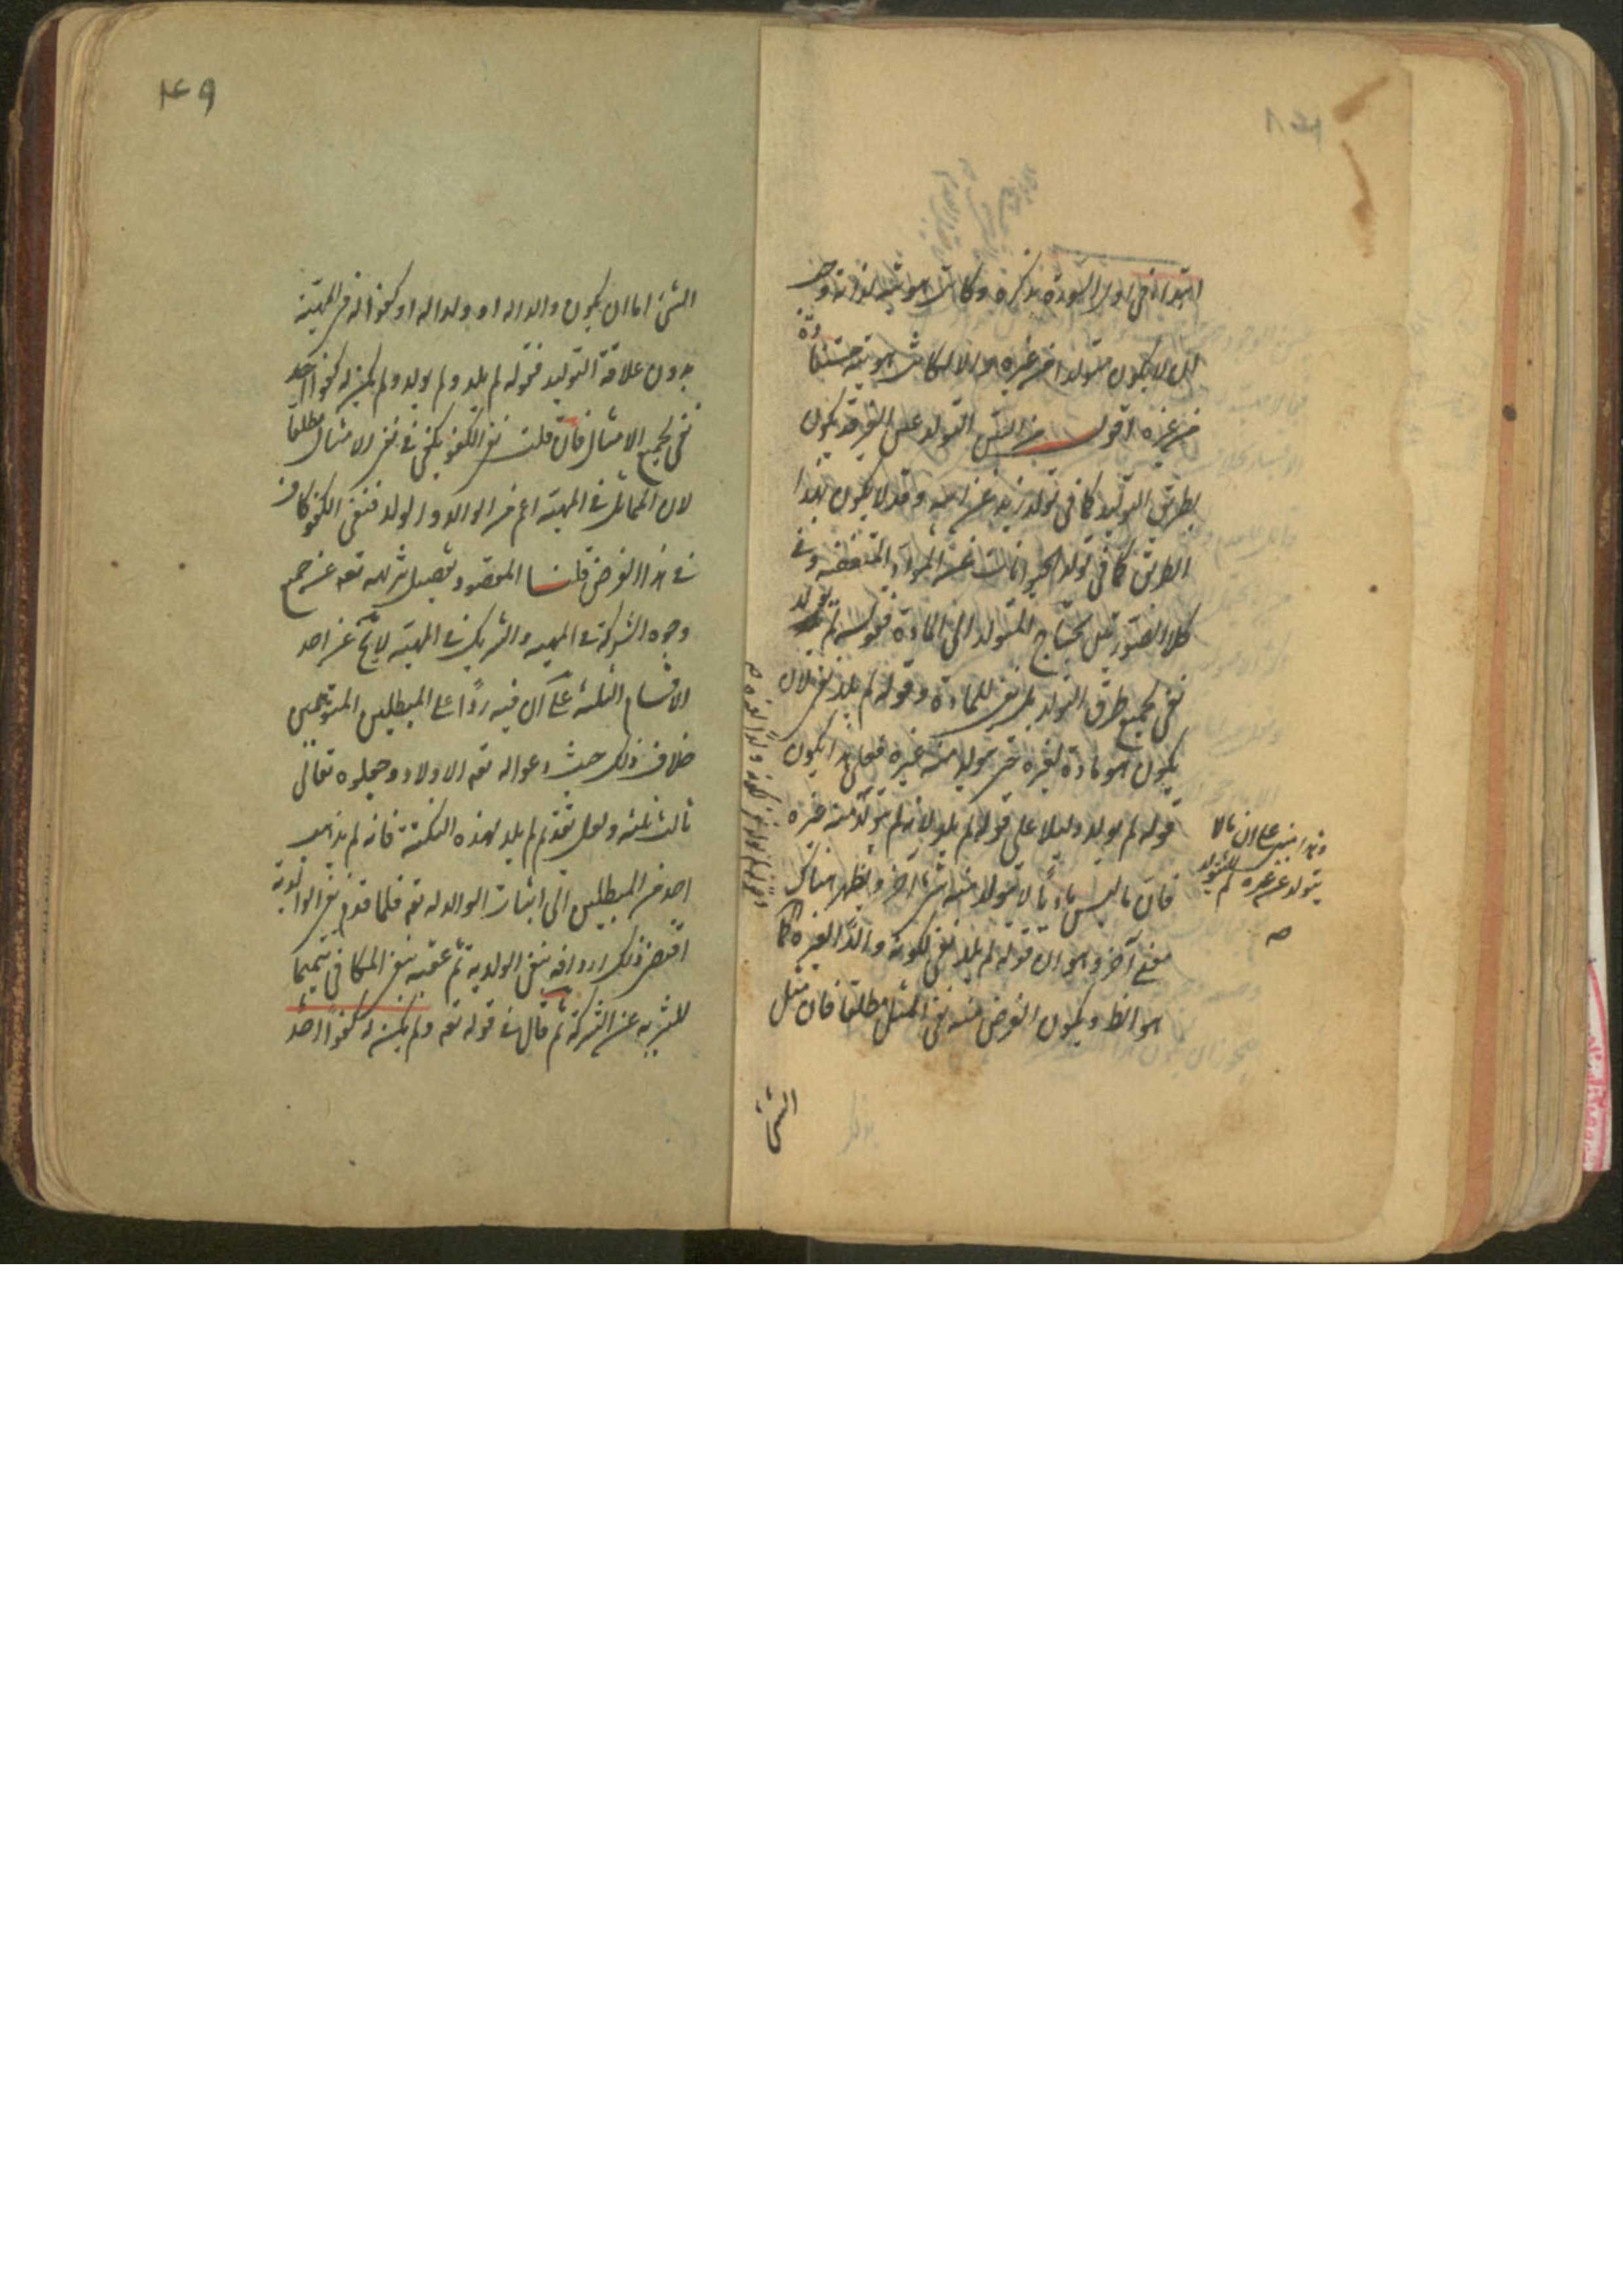 ابتدأ في اول السورة بذكره وكانت هويته لذاته وجب
ان لا يكون متولدا من غيره والا لكانت هويته مستفادة
من غيره اقول التولد عن الشئ قد يكون
بطريق التوليد كما في تولد زيد عن ابيه وقد لا يكون بهذا
الطريق كما في تولد الحيوانات عن المواد المتعفنة وفي
كلا الصورتين يحتاج المتولد الى المادة فقوله لم يولد
نفي لجميع طرق التولد بل نفي للمادة وقوله لم يلد نفي لان
يكون هو مادة لغيره حتى يتولد منه غيره فعلى هذا يكون
قوله لم يولد دليلا على قوله لم يلد لانه لم يتولد منه غيره
فان ما ليس ماديا لا يتولد منه شئ آخر ويظهر هناك
معنى آخر وهو ان قوله لم يلد نفي لكونه والدا لغيره كما
هو الظ ويكون الغرض منه نفي المثل مطلقا فان مثل
وهذا مبني على ان ما لا
يتولد عن غيره لم يتولد
الشئ
الشئ اما ان يكون والدا له او ولدا له او كفوا له في المهية
بدون علاقة التوليد فقوله لم يلد ولم يولد ولم يكن له كفوا احد
نفي لجميع الامثال فان قلت نفي الكفو يكفي في نفي الامثال مطلقا
لان المماثل في المهية اعم من الوالد والولد فنفي الكفو كاف
في هذا الغرض قلنا المقصود تفصيل تنزيهه تعه عن جميع
وجوه الشركة في المهية والشريك في المهية لا يخ عن احد
الاقسام الثلثة على ان فيه ردا على المبطلين المتوهمين
خلاف ذلك حيث دعوا له تعه الاولاد وجعلوه تعالى
ثالث ثلثة ولعل تقديم لم يلد لهذه النكتة فانه لم يذهب
احد من المبطلين الى اثبات الوالد له تعه فلما قدم نفي الوالدية
اقتضى ذلك اردافه بنفي الولدية ثم عقبه بنفي المكافي تتميما
للتنزيه عن الشركة ثم قال في قوله تعه ولم يكن له كفوا احد